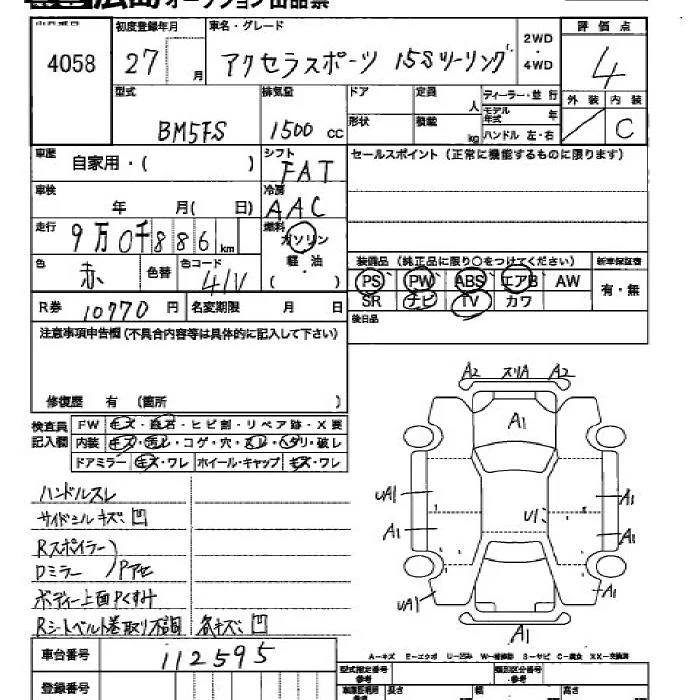 広島オークション出品票
出品番号 初度登録年月 車名・グレード 2WD・4WD 評価点
4058 27 月 アクセラスポーツ 15Sツーリング 4
型式 排気量 ドア 定員 人 ディーラー・並行 外装 内装
BM5FS 1500 cc 形状 積載 kg モデル年式 年 C
ハンドル 左・右
車歴 自家用・( ) シフト FAT セールスポイント(正常に機能するものに限ります)
車検 年 月( 日) 冷房 AAC
走行 9万0千886km 燃料 ガソリン
軽・油
( )
色 赤 色替 色コード 41V
装備品(純正品に限り○をつけてください) 新車保証書
PS PW ABS エアB AW 有・無
SR ナビ TV カワ
R券 10770 円 名変期限 月 日 後日品
注意事項申告欄(不具合内容等は具体的に記入して下さい)
修復歴 有(箇所 )
検査員記入欄 FW キズ・飛石・ヒビ割・リペア跡・X要
内装 キズ・汚レ・コゲ・穴・スレ・ハガリ・破レ
ドアミラー キズ・ワレ ホイール・キャップ キズ・ワレ
ハンドルスレ
サイドシルキズ、凹
Rスポイラー
Dミラー Pアセ
ボディー上面Pくすみ
Rシートベルト巻取り不調 各キズ、凹
A2 スリA A2
A1
UA1 A1
A1 U1 A1
UA1 A1
A1
A-キズ E-エクボ U-凹み W-補修跡 S-サビ C-腐食 XX-交換済
車台番号 112595
型式指定番号 参考 類別区分番号 参考
登録番号 車庫証明用 参考 長さ 幅 高さ